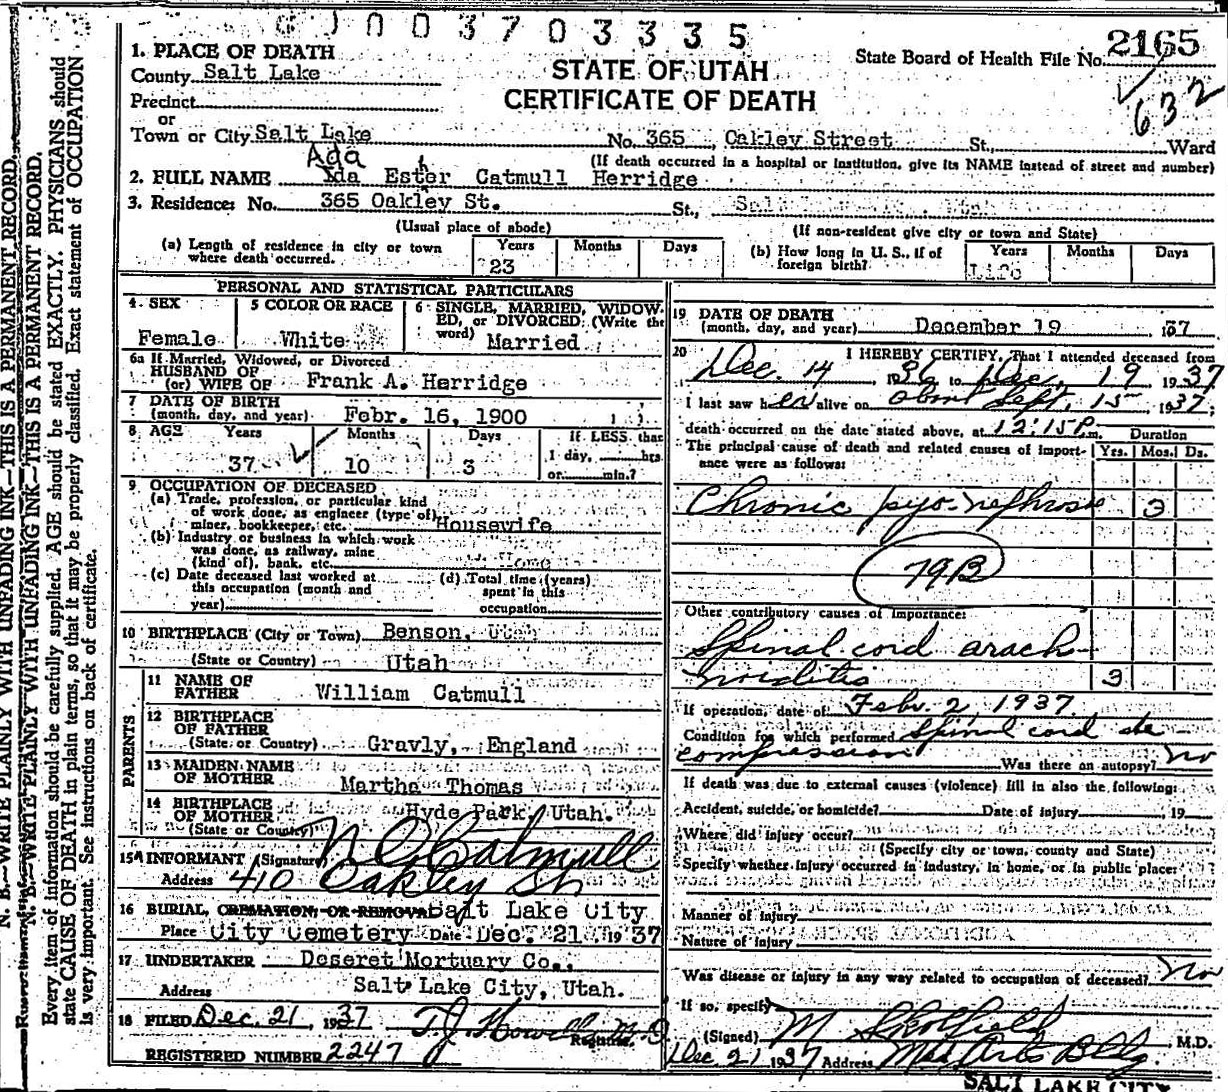 0003703335
1. PLACE OF DEATH
County Salt Lake
STATE OF UTAH
CERTIFICATE OF DEATH
State Board of Health File No. 2165
632
Precinct
or
Town or City Salt Lake No. 365 Oakley Street St., Ward
(If death occurred in a hospital or institution, give its NAME instead of street and number)
Ada
2. FULL NAME Ida Ester Catmull Herridge
3. Residence: No. 365 Oakley St. St.,
(Usual place of abode) (If non-resident give city or town and State)
(a) Length of residence in city or town where death occurred. Years 23 Months Days
(b) How long in U. S., if of foreign birth? Years Life Months Days
PERSONAL AND STATISTICAL PARTICULARS
4. SEX Female
5 COLOR OR RACE White
6 SINGLE, MARRIED, WIDOWED, or DIVORCED: (Write the word) Married
6a If Married, Widowed, or Divorced
HUSBAND OF
(or) WIFE OF Frank A. Herridge
7 DATE OF BIRTH
(month, day, and year) Febr. 16, 1900
8 AGE Years 37 Months 10 Days 3 If LESS than 1 day, hrs. or min.?
9 OCCUPATION OF DECEASED
(a) Trade, profession, or particular kind
of work done, as engineer (type of)
miner, bookkeeper, etc. Housewife
(b) Industry or business in which work
was done, as railway, mine
(kind of), bank, etc.
(c) Date deceased last worked at
this occupation (month and
year)
(d) Total time (years)
spent in this
occupation
10 BIRTHPLACE (City or Town) Benson, Utah
(State or Country) Utah
PARENTS
11 NAME OF
FATHER William Catmull
12 BIRTHPLACE
OF FATHER
(State or Country) Gravly, England
13 MAIDEN NAME
OF MOTHER Martha Thomas
14 BIRTHPLACE
OF MOTHER Hyde Park, Utah.
(State or Country)
15 INFORMANT (Signature) N C Catmull
Address 410 Oakley St
16 BURIAL, CREMATION, OR REMOVAL Salt Lake City
Place City Cemetery Date Dec. 21 1937
17 UNDERTAKER Deseret Mortuary Co.,
Address Salt Lake City, Utah.
18 FILED Dec. 21, 1937 T. J. Howells M.D. Registrar.
REGISTERED NUMBER 2247
19 DATE OF DEATH
(month, day, and year) December 19 37
20 I HEREBY CERTIFY, That I attended deceased from
Dec. 14 1936 to Dec. 19 1937
I last saw her alive on about Sept. 15 1937;
death occurred on the date stated above, at 12:15 P.m. Duration
The principal cause of death and related causes of importance were as follows: Yrs. Mos. Ds.
Chronic pyo-nephrosis 3
79B
Other contributory causes of importance:
Spinal cord arach-
noiditis 3
If operation, date of Febr. 2, 1937
Condition for which performed Spinal cord de-
compression Was there an autopsy? No
If death was due to external causes (violence) fill in also the following:
Accident, suicide, or homicide? Date of injury 19
Where did injury occur?
(Specify city or town, county and State)
Specify whether injury occurred in industry, in home, or in public place:
Manner of injury
Nature of injury
Was disease or injury in any way related to occupation of deceased? No
If so, specify
(Signed) M Skolfield, M.D.
Dec 21 1937 Address Med Arts Bldg.
SALT LAKE CITY
N. B.—WRITE PLAINLY WITH UNFADING INK—THIS IS A PERMANENT RECORD.
N. B.—WRITE PLAINLY WITH UNFADING INK—THIS IS A PERMANENT RECORD.
Every item of information should be carefully supplied. AGE should be stated EXACTLY. PHYSICIANS should
state CAUSE OF DEATH in plain terms, so that it may be properly classified. Exact statement of OCCUPATION
is very important. See instructions on back of certificate.